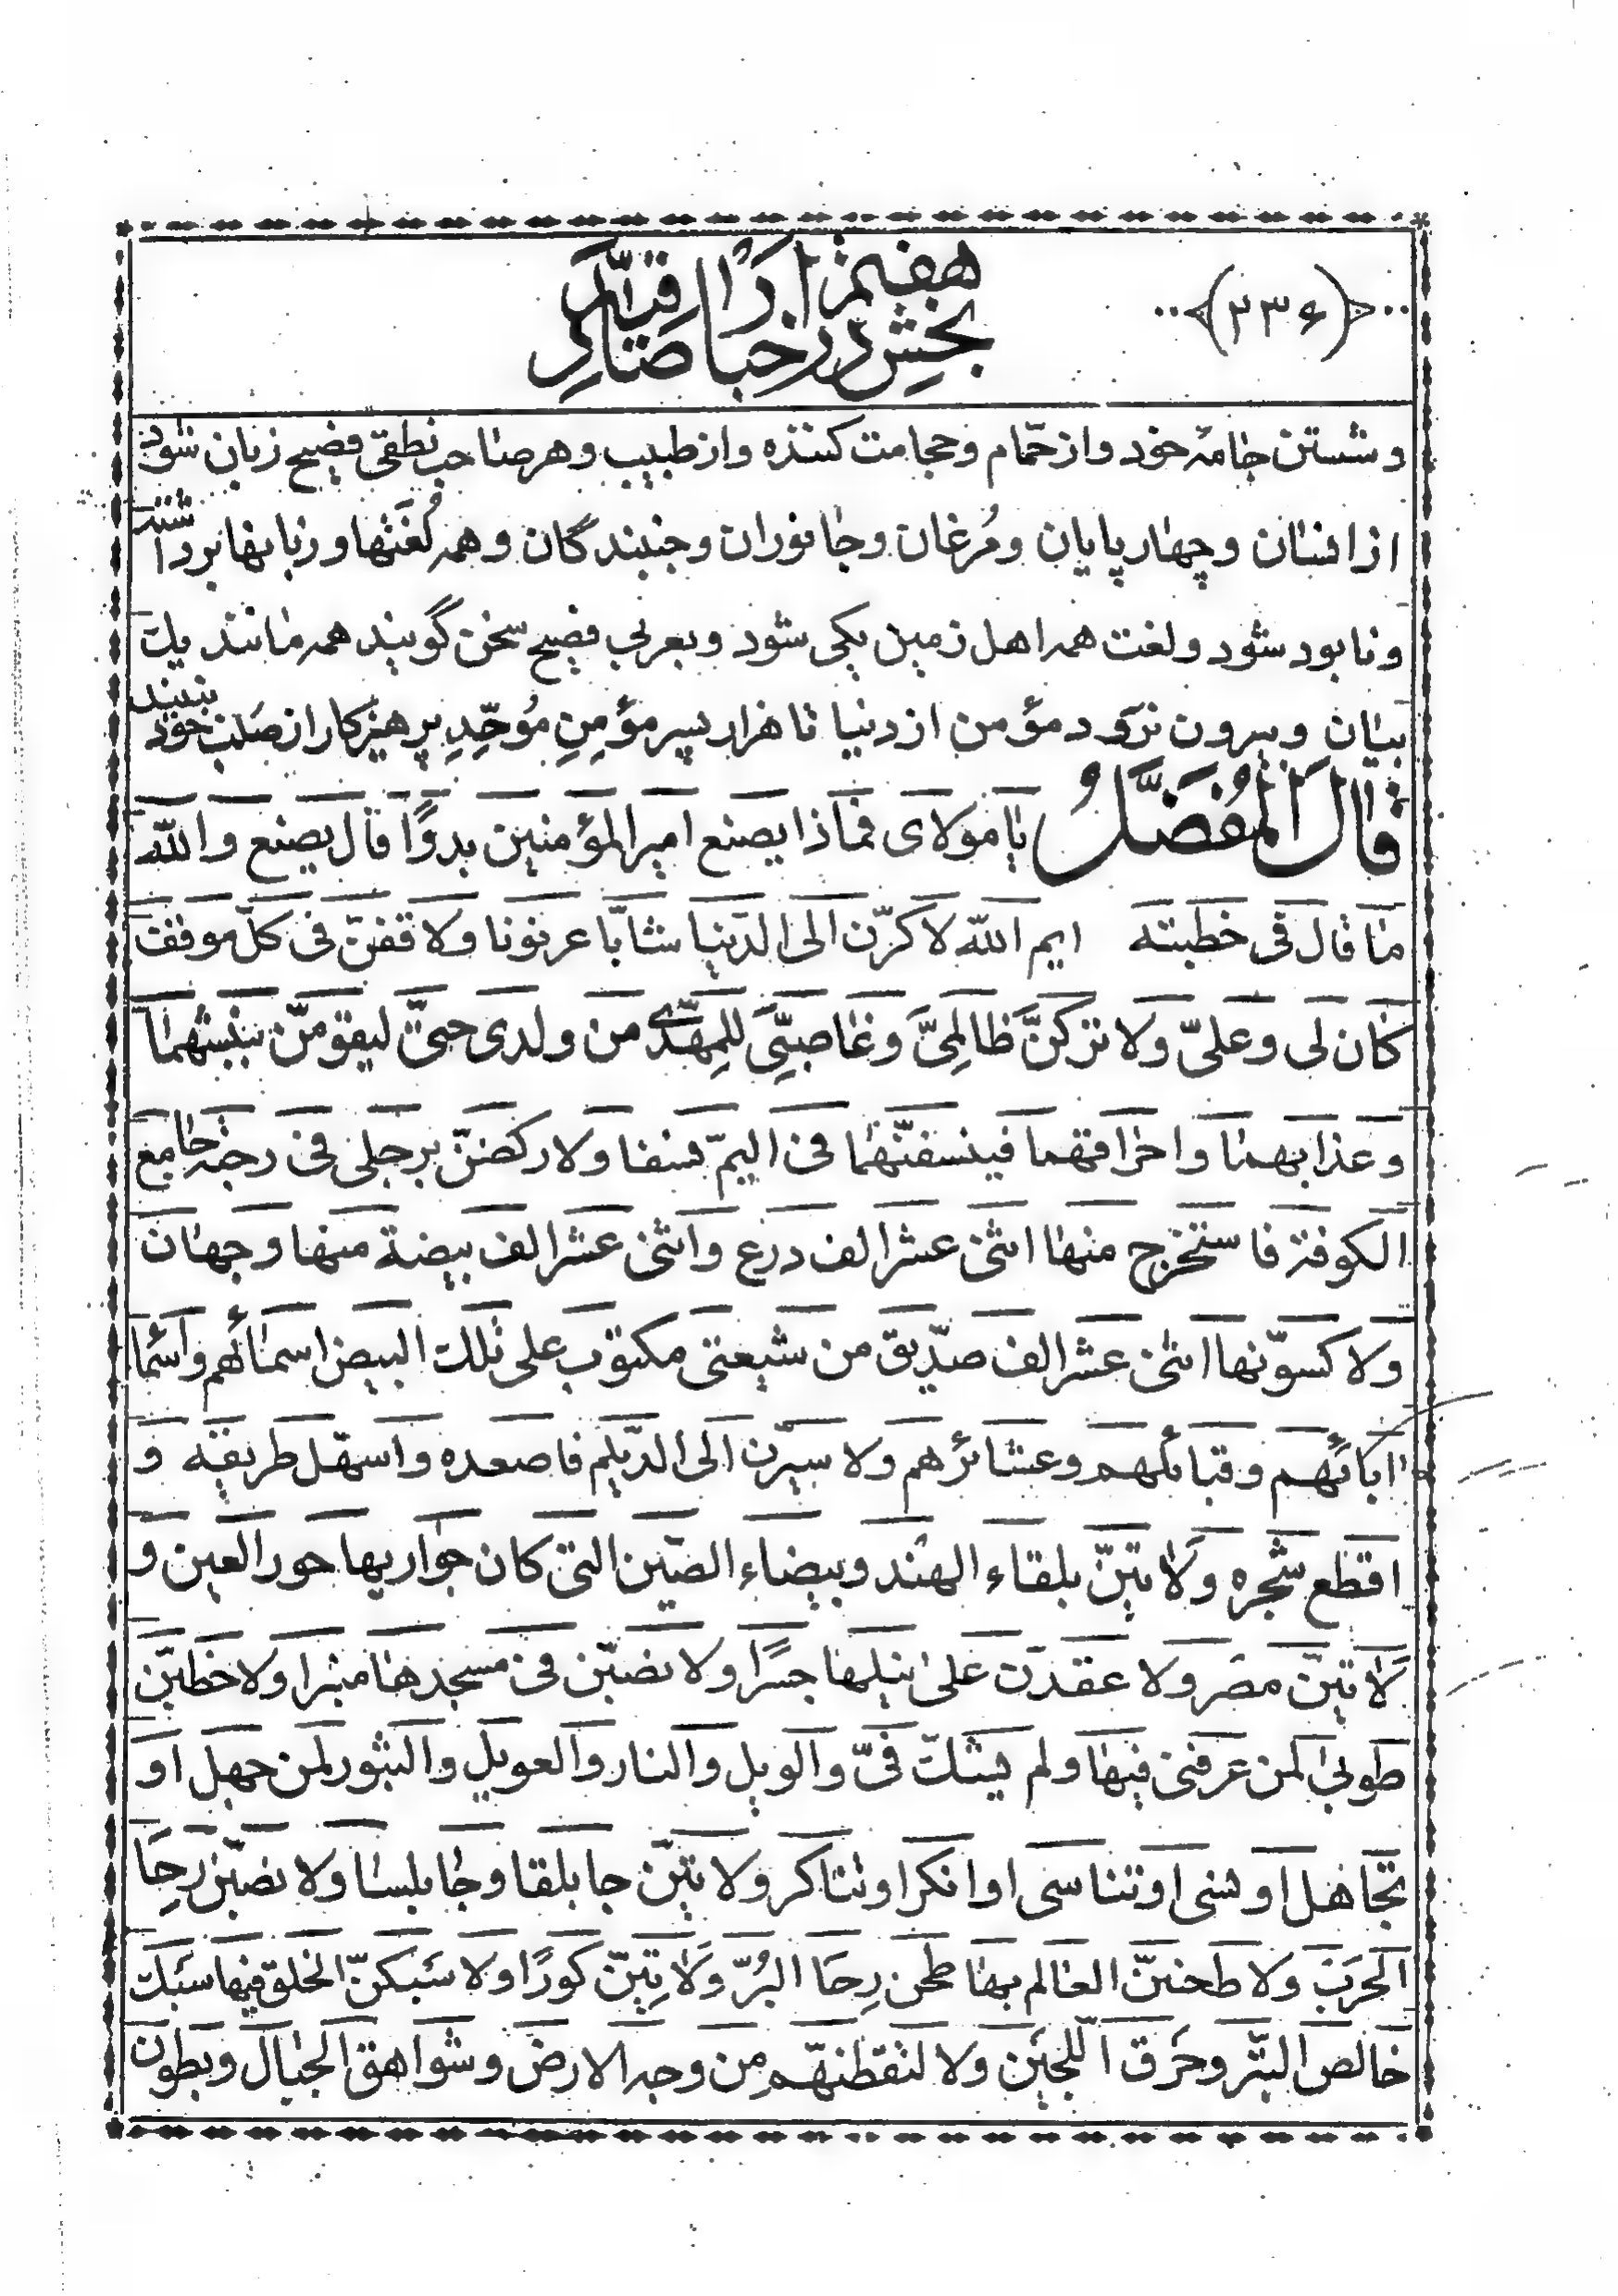 ﴿۲۳۶﴾
بخش هفتم در اخباری که از امام صادق
و شستن جامهٔ خود و از حمّام و حجامت کننده و از طبیب و هر صاحب نطقی فصیح زبان شود
از انسان و چهار پایان و مُرغان و جانوران و جنبندگان و همه لُغَتها و زبانها برداشته
و نابود شود و لغت همه اهل زمین یکی شود و بعربی فصیح سخن گویند همه مانند یک
بیان و بیرون نرود مؤمن از دنیا تا هزار پسر مؤمِنِ مُوحِّدِ پرهیزکار از صَلب خود ببیند
قالَ المُفَضَّلُ یا مولای فماذا یصنع امیر المؤمنین بدوًا قال یصنع والله
ما قال فی خطبته ایم الله لاکرّن الی الدنیا شابّا عرنونا ولاقفنّ فی کلّ موقف
کان لی وعلیّ ولاترکنَّ ظالِمیَّ وغاصبِیَّ للمِهّدی من ولدی حتیّ لیقومّن بنبشهما
وعذابهما واحراقهما فینسفنّهما فی الیمّ نسفا ولارکضنّ برجلی فی رحبه جامع
الکوفة فاستخرج منها اثنی عشر الف درع واثنی عشر الف بیضة منها وجهان
ولاکسوّنها اثنی عشر الف صدّیق من شیعتی مکتوب علی تلک البیض اسمائهم واسما
ابائهم وقبائلهم وعشائرهم ولاسیرّن الی الدّیلم فاصعده واسهّل طریقه و
اقطع شجره ولاتینّ بلقاء الهند وبیضاء الصّین التی کان جواریها حور العین و
لاتینّ مصر ولاعقدنّ علی نیلها جسرًا ولانصبّن فی مسجدها منبرا ولاخطبّن
طوبی لمن عرفنی فیها ولم یشکّ فیّ والویل والنار والعویل والثبور لمن جهل او
تجاهل او نسی او تناسی او انکر او تناکر ولاتینّ جابلقا وجابلسا ولانصبّن رِحَا
الحَربَ ولاطحننّ العالم بها طحن رِحَا البُرّ ولاتِینّ کورًا ولاسَبکنّ الخلق فیها سَبَک
خالص التّبر وحَرَق اللّجَین ولالتقطنهّم مِن وجه الارض وشواهق الجبال وبطون